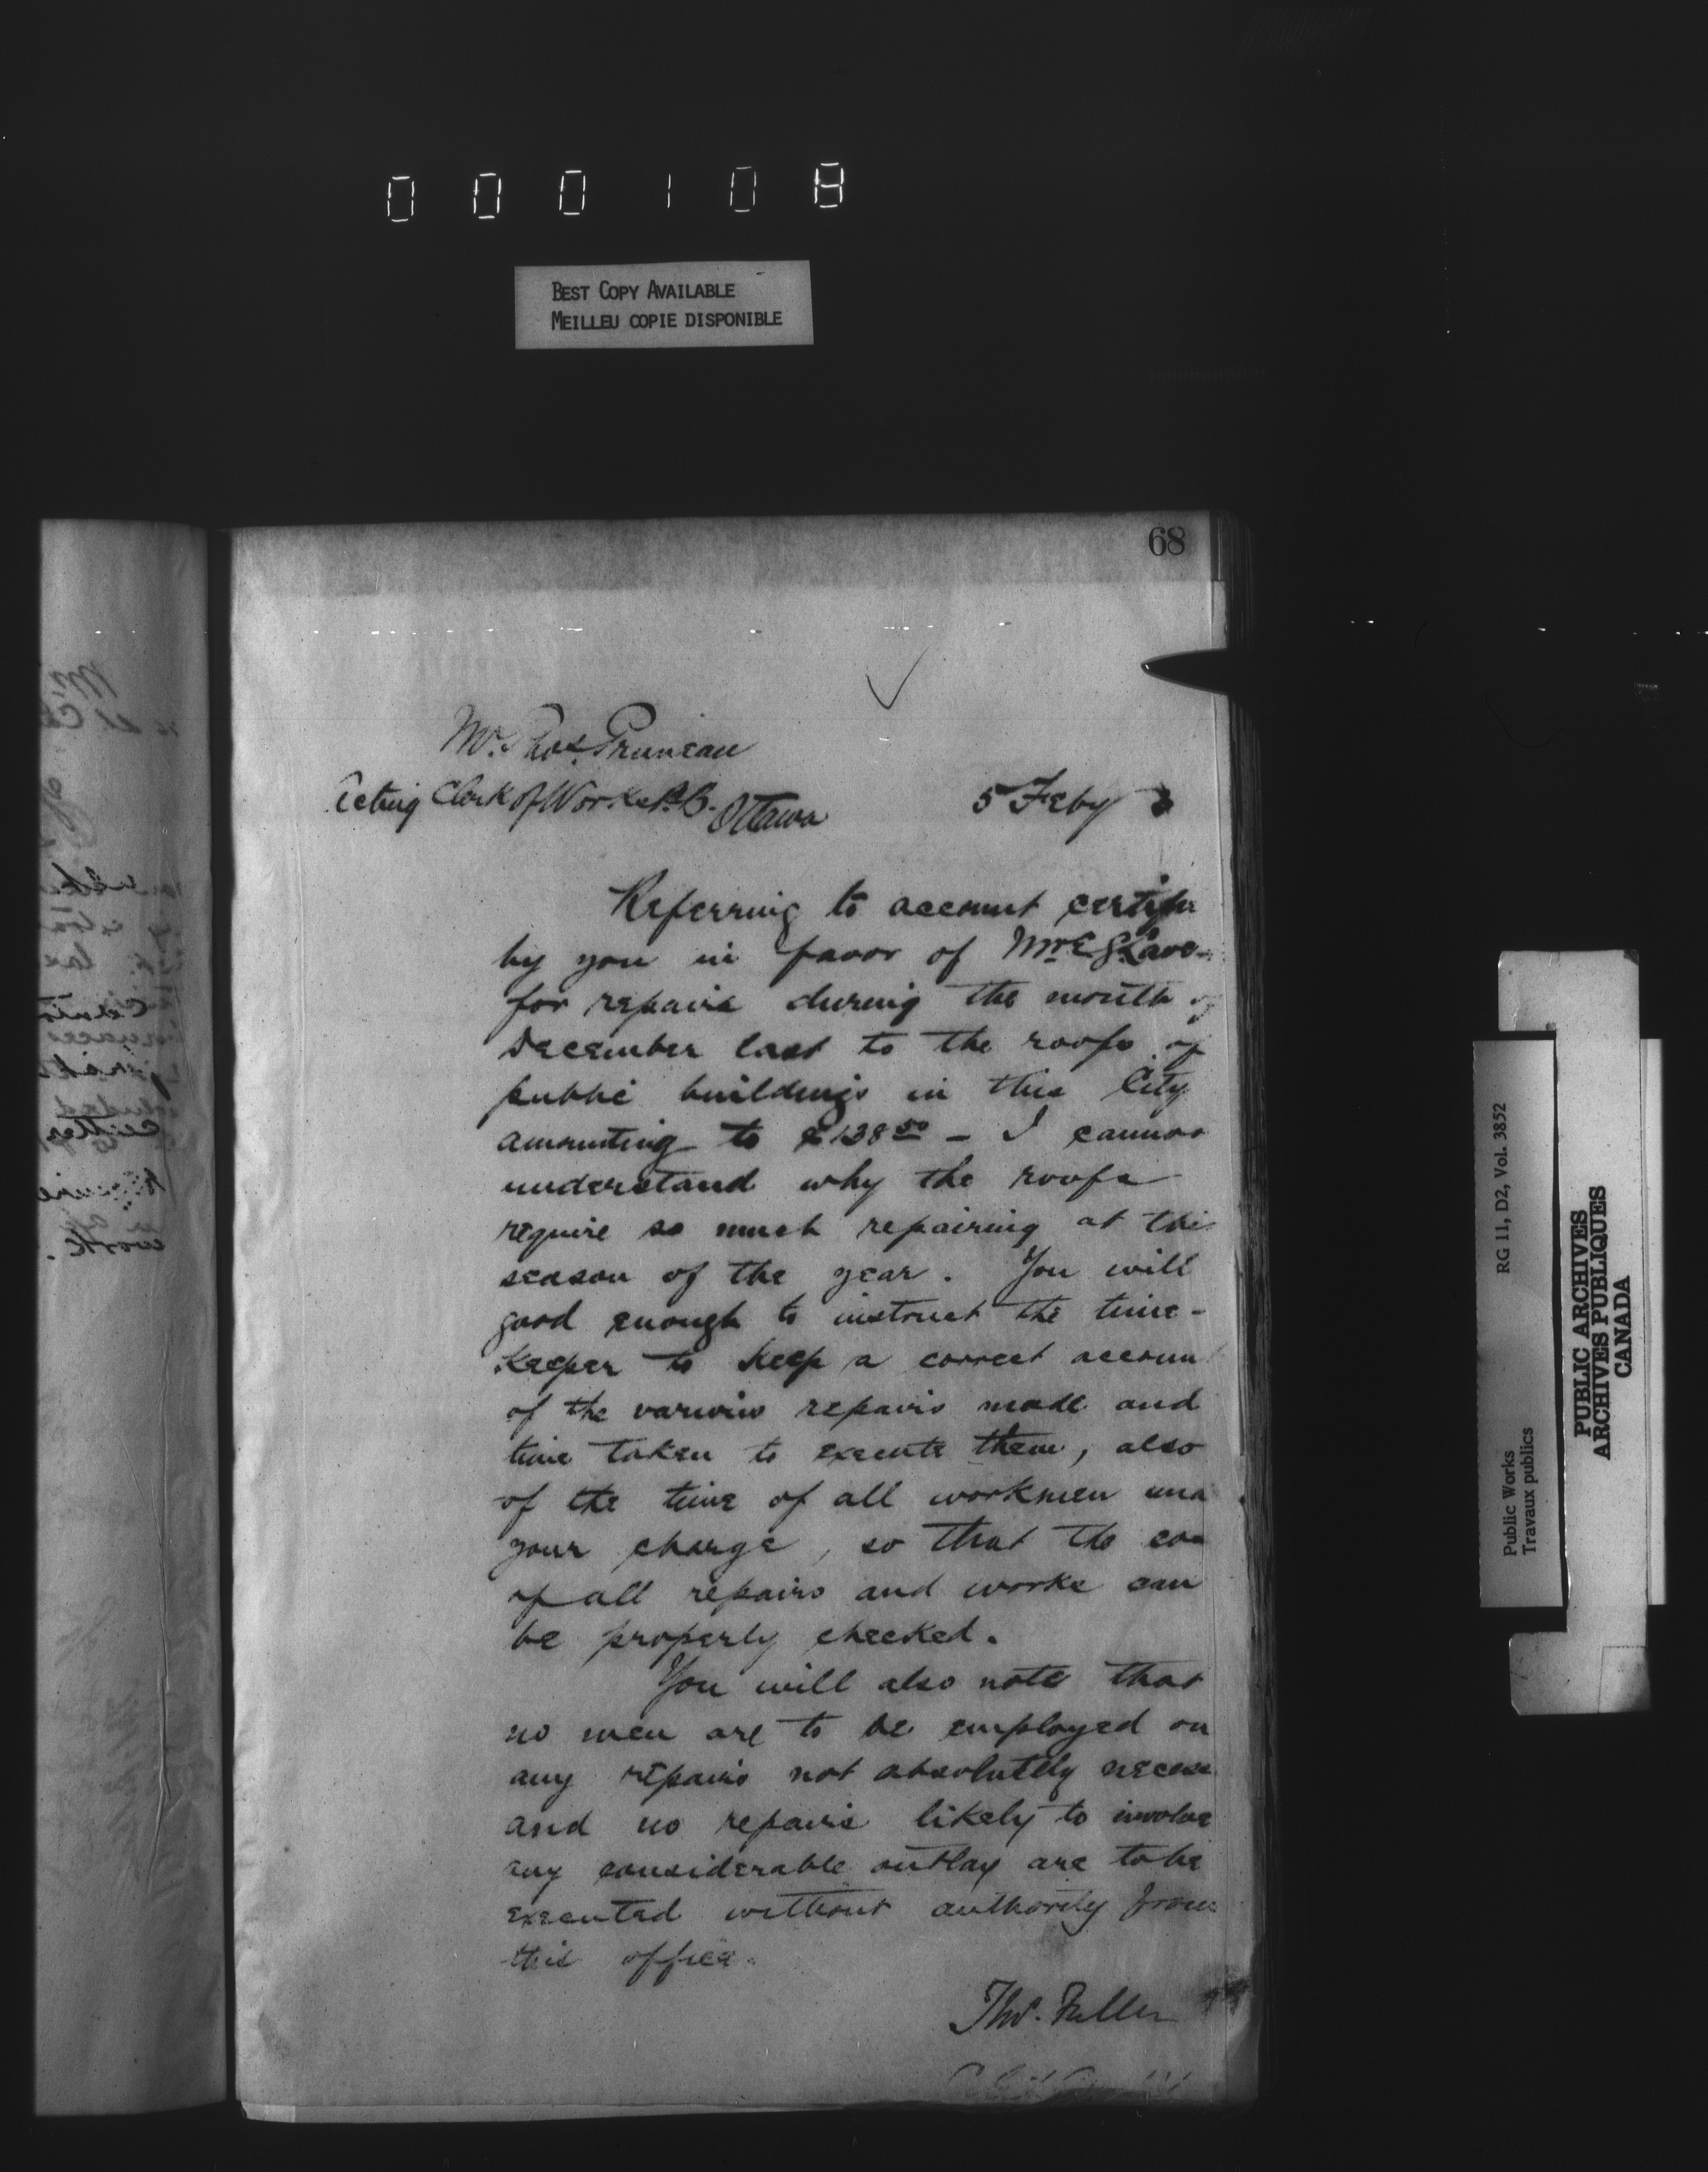 000108
BEST COPY AVAILABLE
MEILLEU COPIE DISPONIBLE
68
Mr. Thos. Pruneau
Acting Clerk of Works P.B. Ottawa
5 Feby
Referring to account
by you in favor of Mr E
for repairs during the month of
December last to the roofs of
public buildings in this City
amounting to $138 50 – I cannot
understand why the roofs
require so much repairing at this
season of the year. You will
good enough to instruct the time-
keeper to keep a correct accoun
of the various repairs made and
time taken to execute them, also
of the time of all workmen und
your charge, so that the cos
of all repairs and works can
be properly checked.
You will also note that
no men are to be employed on
any repairs not absolutely necess
and no repairs likely to involve
any considerable outlay are to be
executed without authority from
this office.
Thos. Fuller
RG 11, D2, Vol. 3852
Public Works
Travaux publics
PUBLIC ARCHIVES
ARCHIVES PUBLIQUES
CANADA